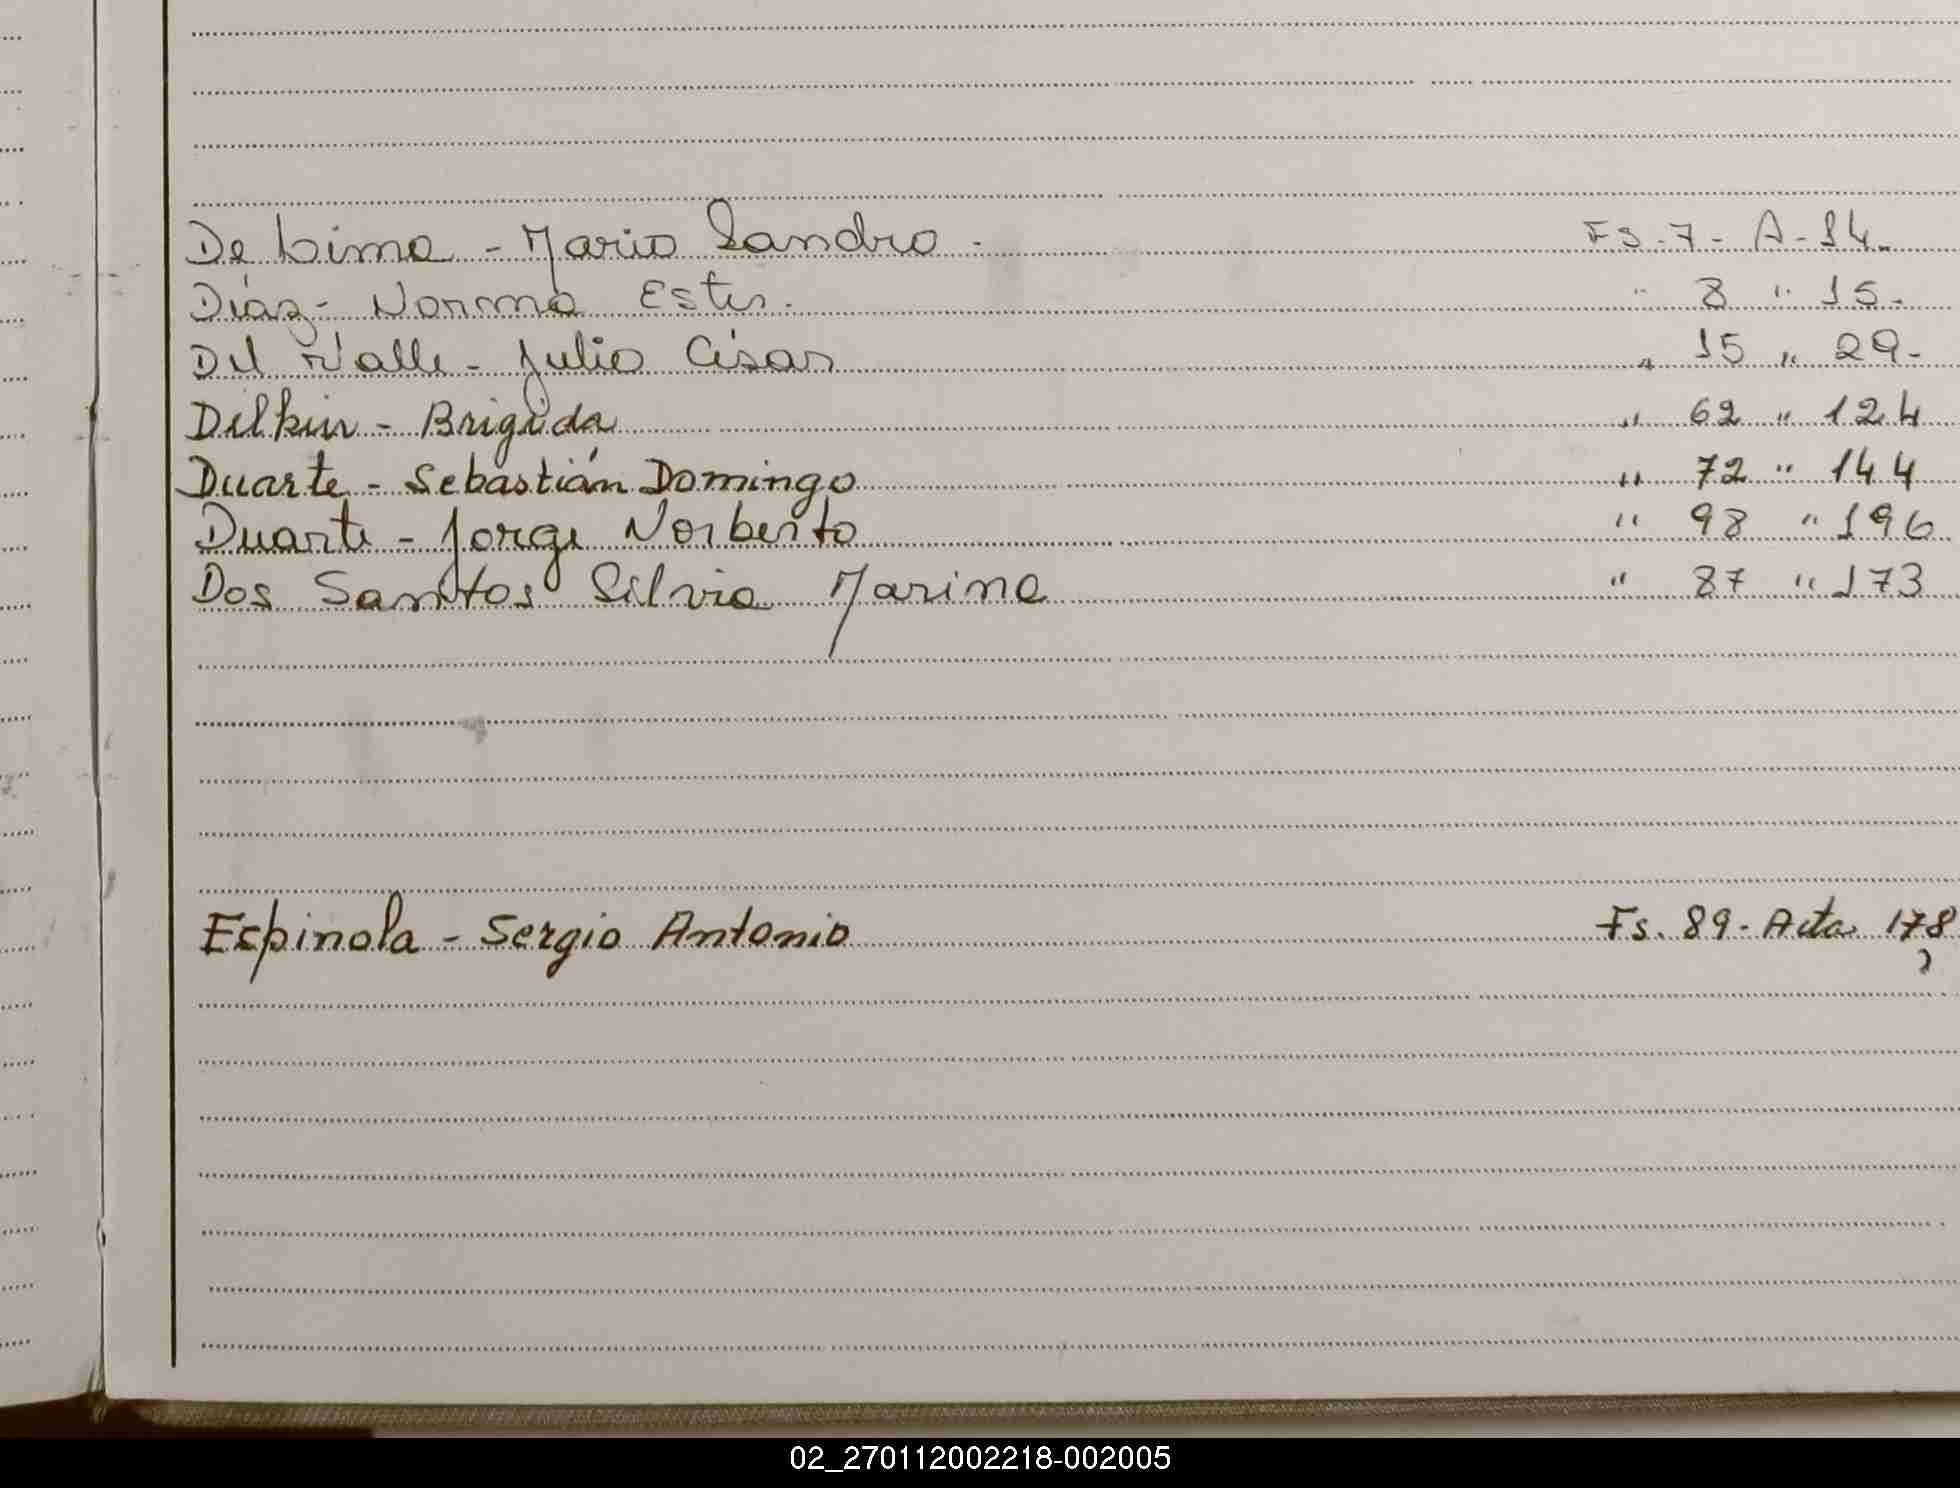 De Lima - Mario Sandro - Fs. 7 - A - 14.
Diaz - Norma Ester. " 8 " 15.
Del Valle - Julio César " 15 " 29.
Delkin - Brigida " 62 " 124
Duarte - Sebastián Domingo " 72 " 144
Duarte - Jorge Norberto " 98 " 196
Dos Santos Silvia Marina " 87 " 173
Espinola - Sergio Antonio Fs. 89 - Acta 178
02_270112002218-002005